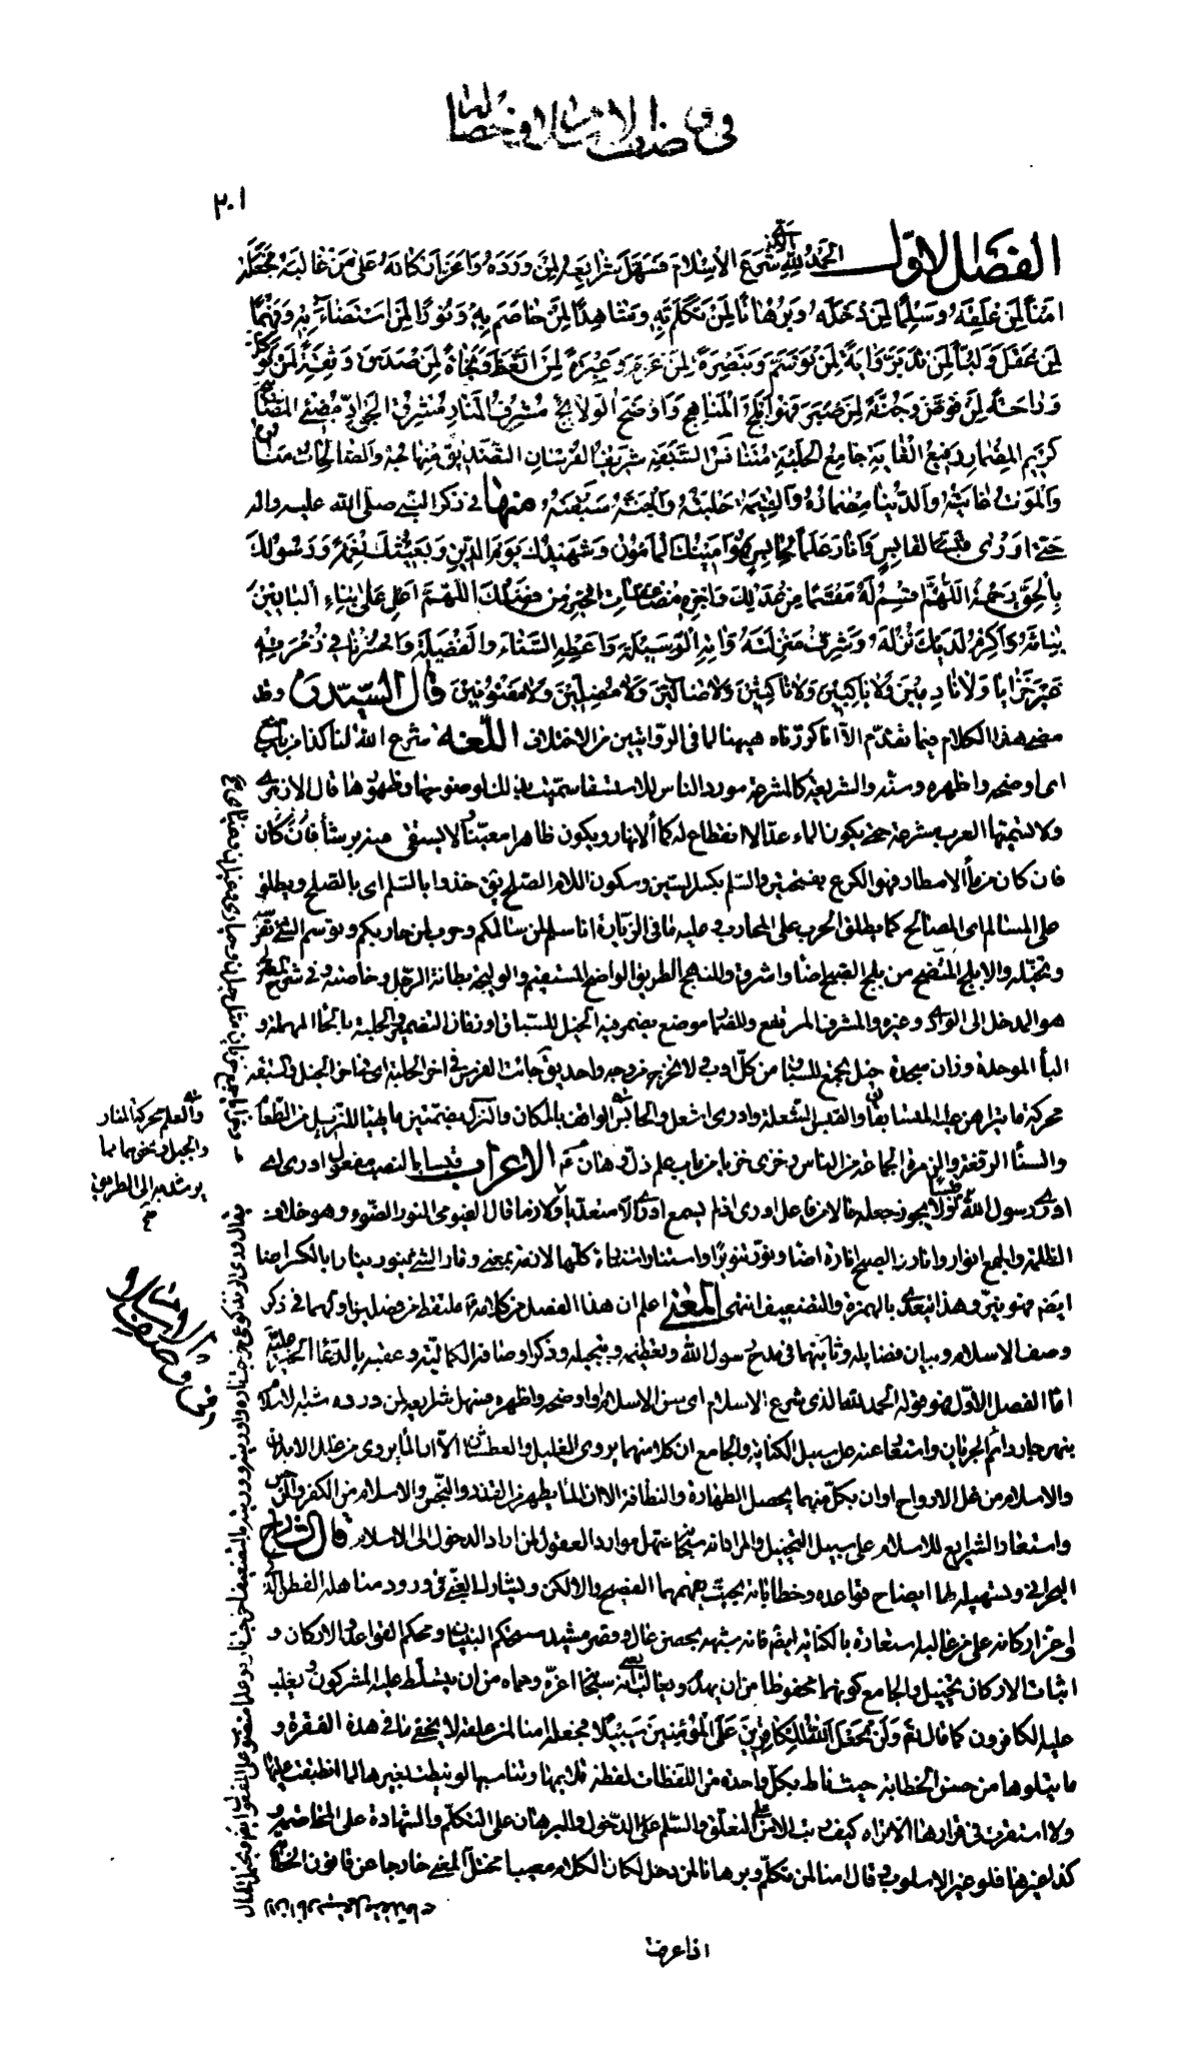 في وصف الاسلام وخصاله
٣٠١
الفصل الاول الحمد لله الذي شرع الإسلام فسهل شرايعه لمن ورده واعز اركانه على من غالبه فجعله
امنا لمن علقه وسلما لمن دخله وبرهانا لمن تكلم به وشاهدا لمن خاصم به ونورا لمن استضاء به وفهما
لمن عقل ولبا لمن تدبر واية لمن توسم وتبصرة لمن عزم وعبرة لمن اتعظ ونجاة لمن صدق وثقة لمن توكل
وراحة لمن فوض وجنة لمن صبر فهو ابلج المناهج واوضح الولايج مشرف المنار مشرق الجواد مضئ المصابيح
كريم المضمار رفيع الغاية جامع الحلبة متنافس السبقة شريف الفرسان التصديق منهاجه والصالحات مناره
والموت غايته والدنيا مضماره والقيمة حلبته والجنة سبقته منها في ذكر النبي صلى الله عليه واله
حتى اورى قبسا لقابس وانار علما لحابس فهو امينك المأمون وشهيدك يوم الدين وبعيثك نعمة ورسولك
بالحق رحمة اللهم اقسم له مقسما من عدلك واجزه مضاعفات الخير من فضلك اللهم اعل على بناء البانين
بنائه واكرم لديك نزله وشرف منزلته واته الوسيلة واعطه السناء والفضيلة واحشرنا في زمرته
غير خزايا ولا نادمين ولا ناكبين ولا ناكثين ولا ضالين ولا مضلين ولا مفتونين قال السيد ره وقد
مضى هذا الكلام فيما تقدم الا اننا كررناه هيهنا لما في الروايتين من الاختلاف اللغة شرع الله لنا كذا من باب منع
اى اوضحه واظهره وسنه والشريعة كالمشرعة مورد الناس للاستسقاء سميت بذلك لوضوحها وظهورها قال الازهرى
ولا تسميها العرب مشرعة حتى يكون الماء عدا لا انقطاع له كماء الانهار ويكون ظاهرا معينا ولا يستقى منه برشاء
فان كان من ماء الامطار فهو الكرع بفتحتين والسلم بكسر السين وسكون اللام الصلح يق خذوا بالسلم اى بالصلح ويطلق
على المسالم اى المصالح كما يطلق الحرب على المحارب وعليه ما في الزيارة انا سلم لمن سالمكم وحرب لمن حاربكم وتوسم الشئ تفرسه
وتخيله والابلج المتضح من بلج الصبح اضاء واشرق والمنهج الطريق الواضح المستقيم والوليجة بطانة الرجل وخاصته
هو المدخل الى الوادى وغيره والمشرف المرتفع والمضمار موضع يضمر فيه الخيل للسباق او زمان التضمير والحلبة بالحاء المهملة و
الباء الموحدة وزان سجدة خيل تجمع للسباق من كل اوب لا تخرج من وجه واحد يق جائت الفرس في اخر الحلبة اى في اخر الخيل والسبقة
محركة ما يتراهن عليه المتسابقان والقبس الشعلة واورى اشعل والحابس الواقف بالمكان والنزل بضمتين ما يهيأ للنزيل من الطعام
والسناء الرفعة والزمرة الجماعة من الناس وخزى خزيا من باب علم ذل وهان الاعراب قبسا بالنصب مفعول اورى اى
اورى رسول الله قبسا ولا يجوز جعله فاعل اورى اذ لم يسمع اورى الا متعديا قال الفيومى النور الضوء وهو خلاف
الظلمة والجمع انوار وانار الصبح انارة اضاء ونور تنويرا واستنار استنارة كلها لازمة بمعنى ونار الشئ ينور نيارا بالكسر اضاء
ايضم فهو نير وهذا يتعدى بالهمزة والتضعيف انتهى المعنى اعلم ان هذا الفصل من كلامه ملتقط من فصلين اولهما في ذكر
وصف الاسلام وبيان فضايله وثانيهما في مدح رسول الله وتعظيمه وتبجيله وذكر اوصافه الكمالية وعقبه بالدعاء
اما الفصل الاول فهو قوله الحمد لله الذى شرع الاسلام اى سن الاسلام واوضحه واظهره فسهل شرايعه لمن ورده شبه الاسلام
بنهر جار دائم الجريان واستعاره عنه على سبيل الكناية والجامع ان كلا منهما يروى الغليل والعطشان الا ان الماء يروى من غلل الابدان
والاسلام من غلل الارواح او ان بكل منهما يحصل الطهارة والنظافة الا ان الماء يطهر من القذر والنجس والاسلام من الكفر والرجس
واستعار الشرايع للاسلام على سبيل التخييل والمراد انه سبحانه سهل موارد العقول لمن اراد الدخول الى الاسلام قال الشارح
البحرانى وتسهيله لها ايضاح قواعده وخطاباته بحيث يفهمها الفصيح والالكن ويشارك الغبي في ورود مناهله الفطن الذكى
واعز اركانه على من غالبه استعارة بالكناية ايضم فانه شبهه بحصن عال وقصر مشيد مستحكم البنيان ومحكم القواعد والاركان و
اثبات الاركان تخييل والجامع كونهما محفوظا من ان يهدم ويغالب سبحانه اعزه وحماه من ان يتسلط عليه المشركون ويغلب
عليه الكافرون كما قال تعم ولن يجعل الله للكافرين على المؤمنين سبيلا فجعله امنا لمن علقه لا يخفى ما في هذه الفقرة و
ما يتلوها من حسن الخطابة حيث ناط بكل واحدة من اللفظات لفظة تلايمها وتناسبها لو نيطت بغيرها لما انطبقت عليها
ولا استقرت في قرارها الا تراه كيف رتب الامن على التعلق والسلم على الدخول والبرهان على التكلم والشهادة على المخاصم و
كذا غيرها فلو غير الاسلوب وقال امنا لمن تكلم وبرهانا لمن دخل لكان الكلام معيبا مختل المعنى خارجا عن قانون الخطابة
والعلم محركة المنار
والجبل ونحوهما مما
يرشد به الى الطريق
منه
في وصف الاسلام وخصاله
اذا عرفت